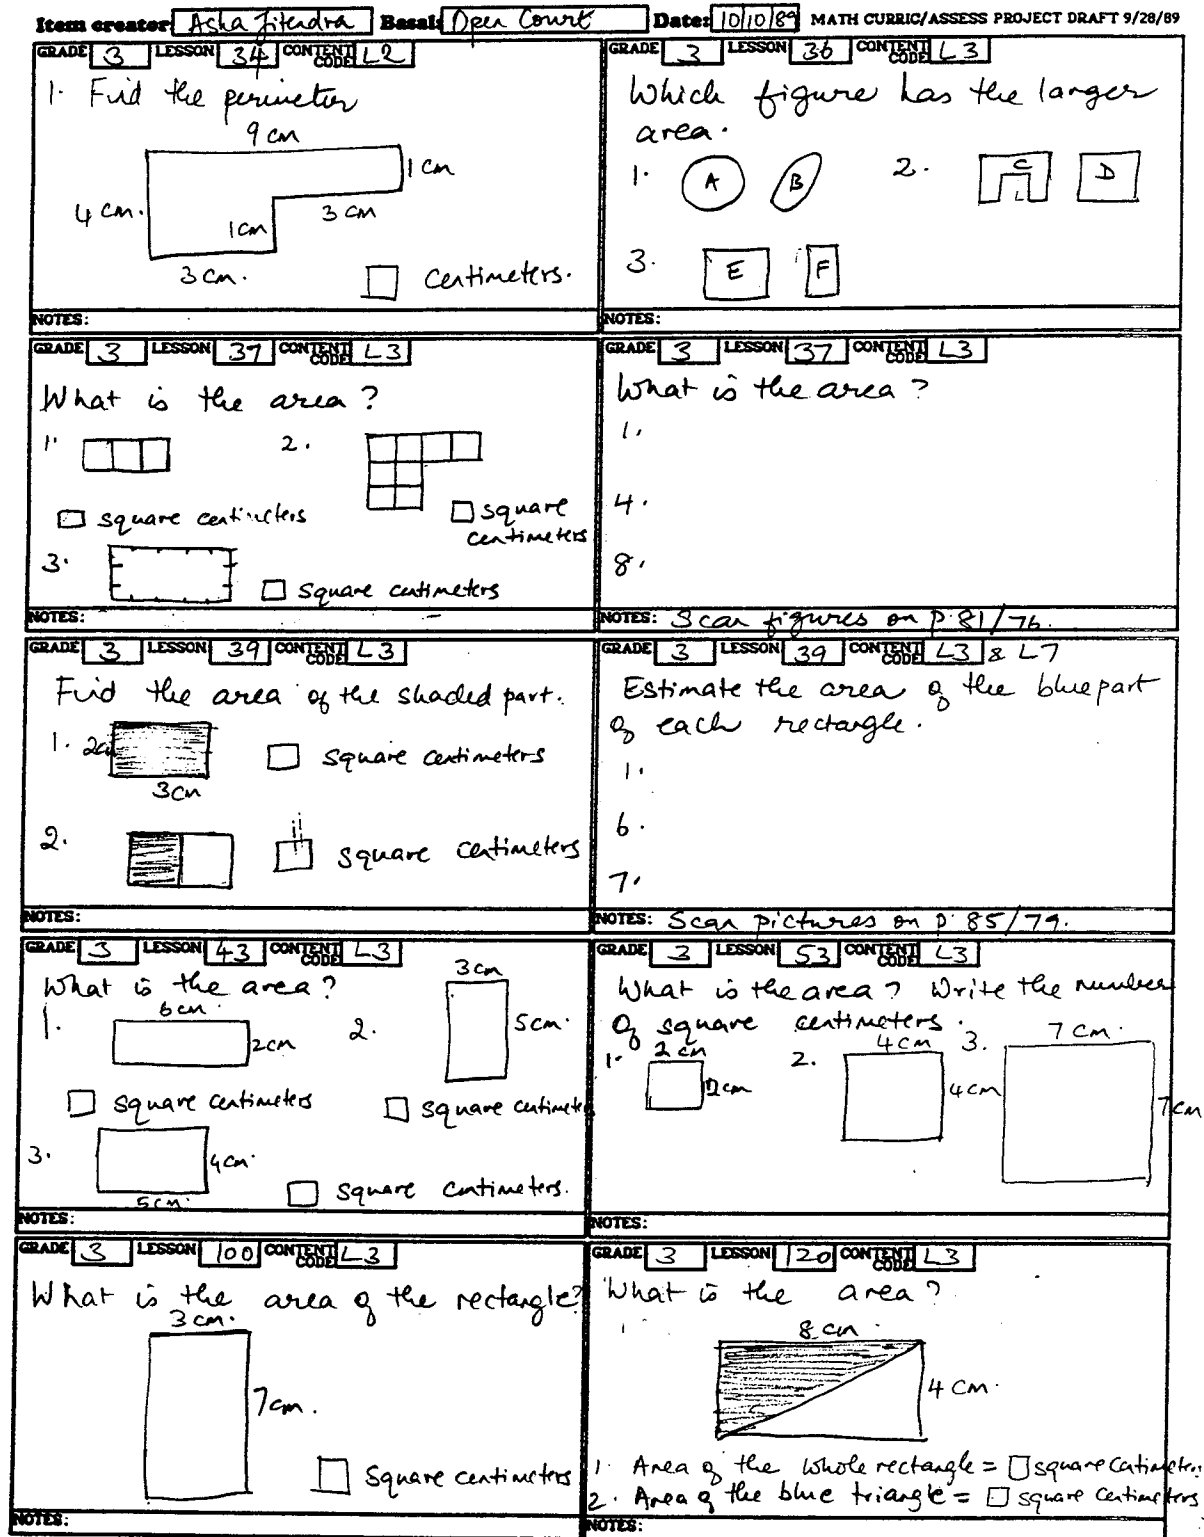 Item creator: Asha Jitendra Basal: Open Court Date: 10/10/89 MATH CURRIC/ASSESS PROJECT DRAFT 9/28/89
GRADE 3 LESSON 34 CONTENT CODE L2
1. Find the perimeter
9 cm
1 cm
4 cm.
3 cm
1 cm
3 cm.
centimeters.
NOTES:
GRADE 3 LESSON 36 CONTENT CODE L3
Which figure has the larger
area.
1. A B 2. C D
3. E F
NOTES:
GRADE 3 LESSON 37 CONTENT CODE L3
What is the area?
1. 2.
square centimeters
square
centimeters
3.
square centimeters
NOTES:
GRADE 3 LESSON 37 CONTENT CODE L3
What is the area?
1.
4.
8.
NOTES: Scan figures on p. 81/76.
GRADE 3 LESSON 39 CONTENT CODE L3
Find the area of the shaded part.
1. 2cm
square centimeters
3cm
2.
square centimeters
NOTES:
GRADE 3 LESSON 39 CONTENT CODE L3 & L7
Estimate the area of the blue part
of each rectangle.
1.
6.
7.
NOTES: Scan pictures on p. 85/79.
GRADE 3 LESSON 43 CONTENT CODE L3
What is the area?
1. 6cm. 2cm
2. 3cm 5cm.
square centimeters
square centimeters
3. 4cm.
5cm.
square centimeters.
NOTES:
GRADE 3 LESSON 53 CONTENT CODE L3
What is the area? Write the number
of square centimeters.
1. 2 cm 2cm
2. 4cm 4cm
3. 7 cm. 7cm
NOTES:
GRADE 3 LESSON 100 CONTENT CODE L3
What is the area of the rectangle?
3 cm.
7cm.
Square centimeters
NOTES:
GRADE 3 LESSON 120 CONTENT CODE L3
What is the area?
8 cm.
4 cm.
1. Area of the whole rectangle = square centimeters
2. Area of the blue triangle = square centimeters
NOTES: